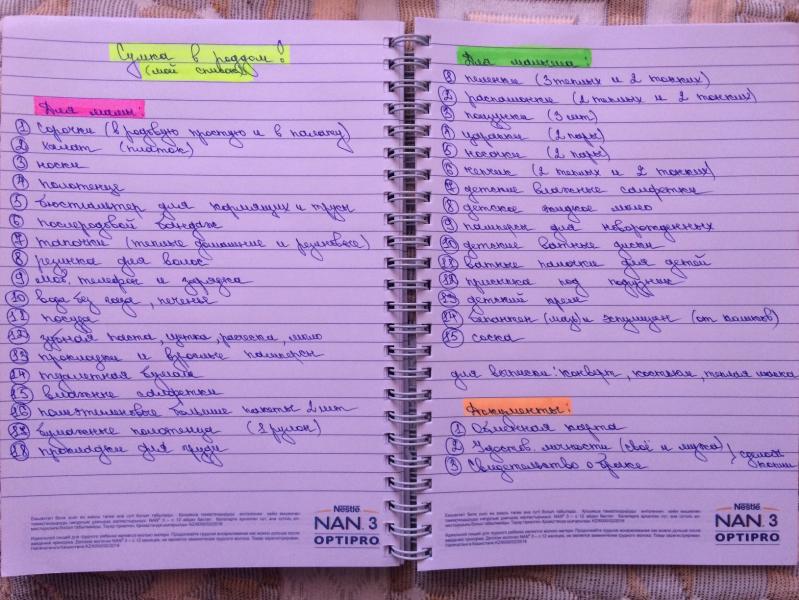 Сумка в роддом!
(мой список)
Для мамы:
1 сорочки (в родовую простую и в палату)
2 халат (платок)
3 носки
4 полотенце
5 бюстгальтер для кормящих и трусы
6 послеродовой бандаж
7 тапочки (теплые домашние и резиновые)
8 резинка для волос
9 моб. телефон и зарядка
10 вода без газа, печенье
11 посуда
12 зубная паста, щётка, расческа, мыло
13 прокладки и взрослые памперсы
14 туалетная бумага
15 влажные салфетки
16 полиэтиленовые большие пакеты 2 шт
17 бумажные полотенца (1 рулон)
18 прокладки для груди
Nestlé
NAN 3
OPTIPRO
Для малыша:
1 пеленки (3 теплых и 2 тонких)
2 распашонки (2 теплых и 2 тонких)
3 ползунки (3 шт)
4 царапки (2 пары)
5 носочки (2 пары)
6 чепчик (2 теплых и 2 тонких)
7 детские влажные салфетки
8 детское жидкое мыло
9 памперсы для новорожденных
10 детские ватные диски
11 ватные палочки для детей
12 присыпка под подгузник
13 детский крем
14 бепантен (мазь) и эспумизан (от коликов)
15 соска
для выписки: конверт, костюм, теплая шапка
Документы:
1 Обменная карта
2 Удостов. личности (своё и мужа)
3 Свидетельство о браке
сделать копии
Nestlé
NAN 3
OPTIPRO